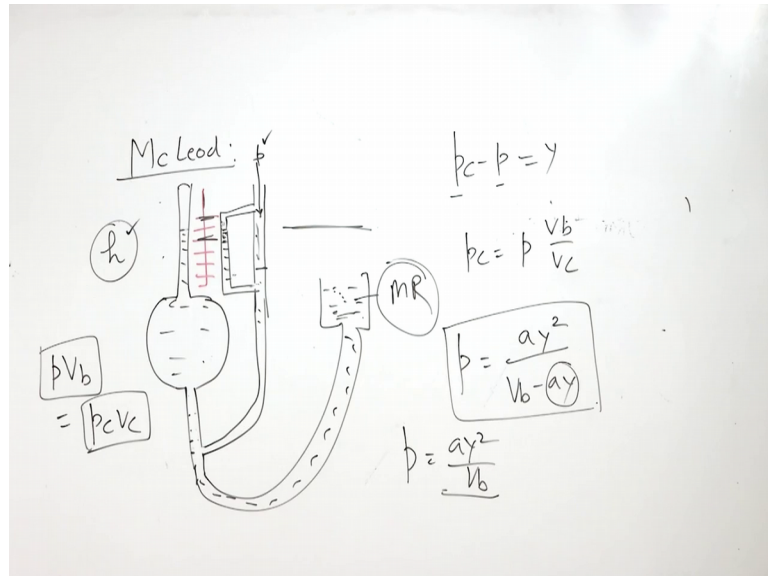 McLeod:
p
h
MR
pVb
= pcVc
pc - p = y
pc = p Vb/Vc
p = ay²/(Vb - ay)
p = ay²/Vb